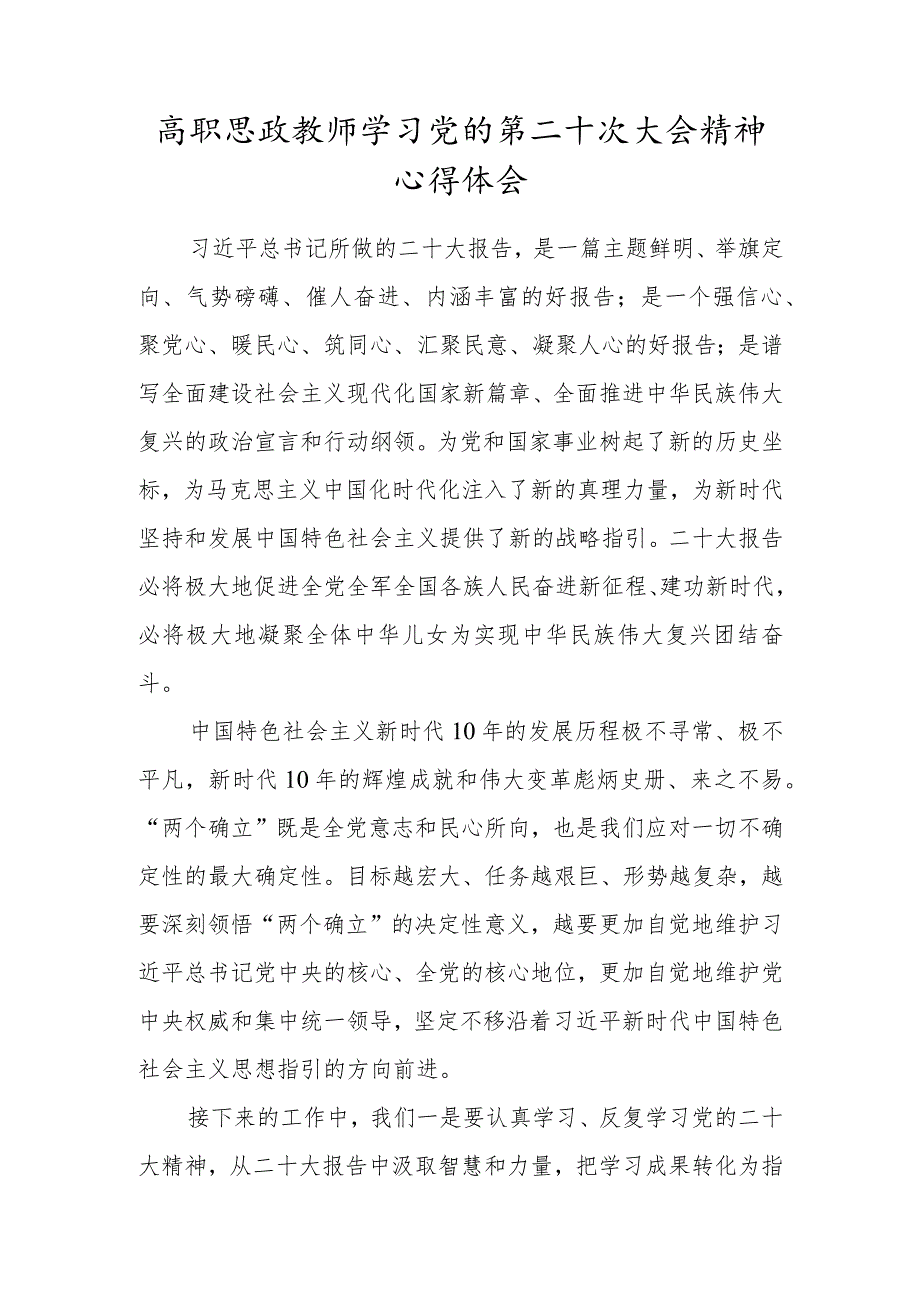 高职思政教师学习党的第二十次大会精神
心得体会
习近平总书记所做的二十大报告，是一篇主题鲜明、举旗定
向、气势磅礴、催人奋进、内涵丰富的好报告；是一个强信心、
聚党心、暖民心、筑同心、汇聚民意、凝聚人心的好报告；是谱
写全面建设社会主义现代化国家新篇章、全面推进中华民族伟大
复兴的政治宣言和行动纲领。为党和国家事业树起了新的历史坐
标，为马克思主义中国化时代化注入了新的真理力量，为新时代
坚持和发展中国特色社会主义提供了新的战略指引。二十大报告
必将极大地促进全党全军全国各族人民奋进新征程、建功新时代，
必将极大地凝聚全体中华儿女为实现中华民族伟大复兴团结奋
斗。
中国特色社会主义新时代10年的发展历程极不寻常、极不
平凡，新时代10年的辉煌成就和伟大变革彪炳史册、来之不易。
“两个确立”既是全党意志和民心所向，也是我们应对一切不确
定性的最大确定性。目标越宏大、任务越艰巨、形势越复杂，越
要深刻领悟“两个确立”的决定性意义，越要更加自觉地维护习
近平总书记党中央的核心、全党的核心地位，更加自觉地维护党
中央权威和集中统一领导，坚定不移沿着习近平新时代中国特色
社会主义思想指引的方向前进。
接下来的工作中，我们一是要认真学习、反复学习党的二十
大精神，从二十大报告中汲取智慧和力量，把学习成果转化为指